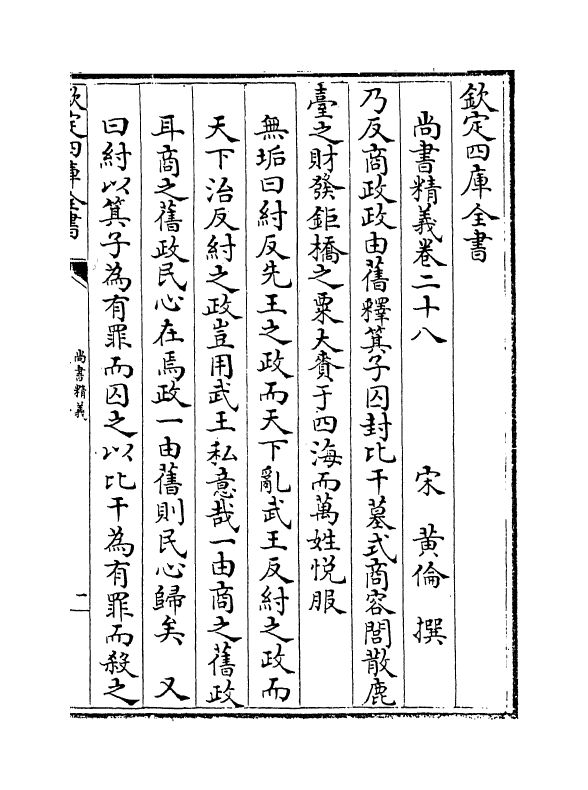 欽定四庫全書
尚書精義卷二十八
宋 黃倫 撰
乃反商政政由舊釋箕子囚封比干墓式商容閭散鹿
臺之財發鉅橋之粟大賚于四海而萬姓悅服
無垢曰紂反先王之政而天下亂武王反紂之政而
天下治反紂之政豈用武王私意哉一由商之舊政
耳商之舊政民心在焉政一由舊則民心歸矣 又
曰紂以箕子為有罪而囚之以比干為有罪而殺之
欽定四庫全書
尚書精義